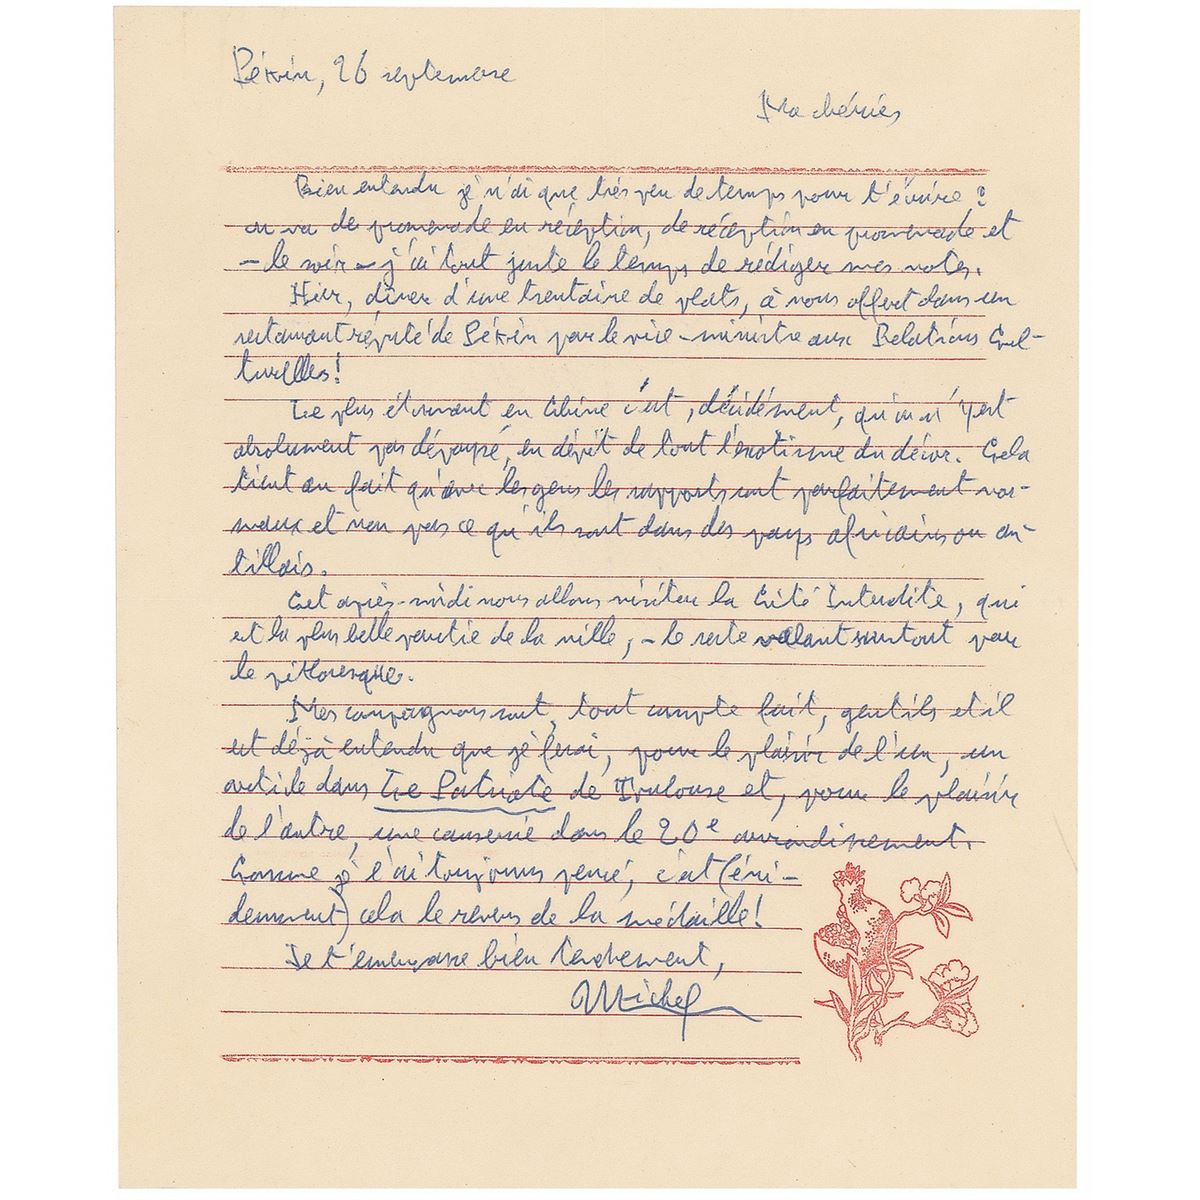 Pékin, 26 septembre
Ma chérie,
Bien entendu je n'ai que très peu de temps pour t'écrire :
on va de promenade en réception, de réception en promenade et
– le soir – j'ai tout juste le temps de rédiger mes notes.
Hier, dîner d'une trentaine de plats, à nous offert dans un
restaurant réputé de Pékin par le vice-ministre aux Relations Cul-
turelles!
Le plus étonnant en Chine c'est, décidément, qu'on n'y est
absolument pas dépaysé, en dépit de tout l'exotisme du décor. Cela
tient au fait qu'avec les gens les rapports sont parfaitement nor-
maux et non pas ce qu'ils sont dans des pays africains ou an-
tillais.
Cet après-midi nous allons visiter la Cité Interdite, qui
est la plus belle partie de la ville, – le reste valant surtout par
le pittoresque.
Mes compagnons sont, tout compte fait, gentils et il
est déjà entendu que je ferai, pour le plaisir de l'un, un
article dans Le Patriote de Toulouse et, pour le plaisir
de l'autre, une causerie dans le 20e arrondissement.
Comme je l'ai toujours pensé, c'est (évi-
demment) cela le revers de la médaille!
Je t'embrasse bien tendrement,
Michel